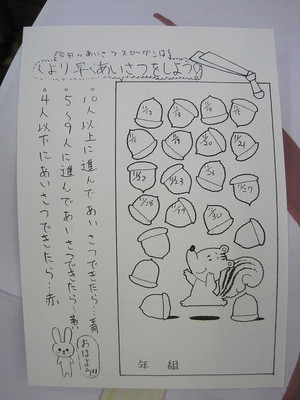 今月のあいさつスローガンは
より早くあいさつをしよう
・10人以上に進んであいさつできたら…青
・5〜9人に進んであいさつできたら…黄
・4人以下にあいさつできたら…赤
11/20
11/21
11/22
11/27
11/28
11/29
11/30
年 組
おはよう!!